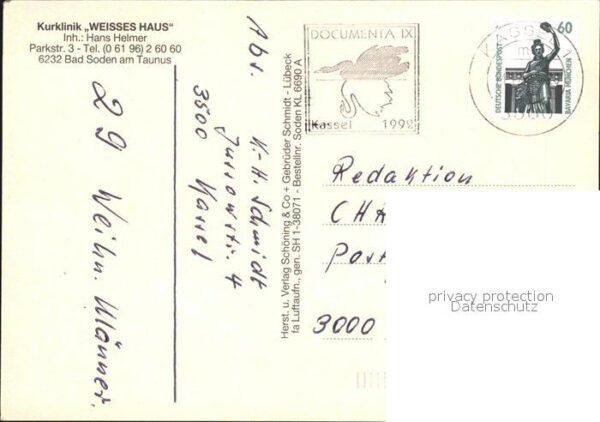 Kurklinik „WEISSES HAUS"
Inh.: Hans Helmer
Parkstr. 3 - Tel. (0 61 96) 2 60 60
6232 Bad Soden am Taunus
29 Weihn. Männer.
Abs.
K.-H. Schmidt
4
3500 Kassel
Herst. u. Verlag Schöning & Co + Gebrüder Schmidt - Lübeck
fa Luftaufn., gen. SH 1-38071 - Bestellnr. Soden KL 6690 A
DOCUMENTA IX
Kassel 1992
KASSEL 1
3500
60
DEUTSCHE BUNDESPOST
BAVARIA MÜNCHEN
Redaktion
CHA
Post
3000
privacy protection
Datenschutz